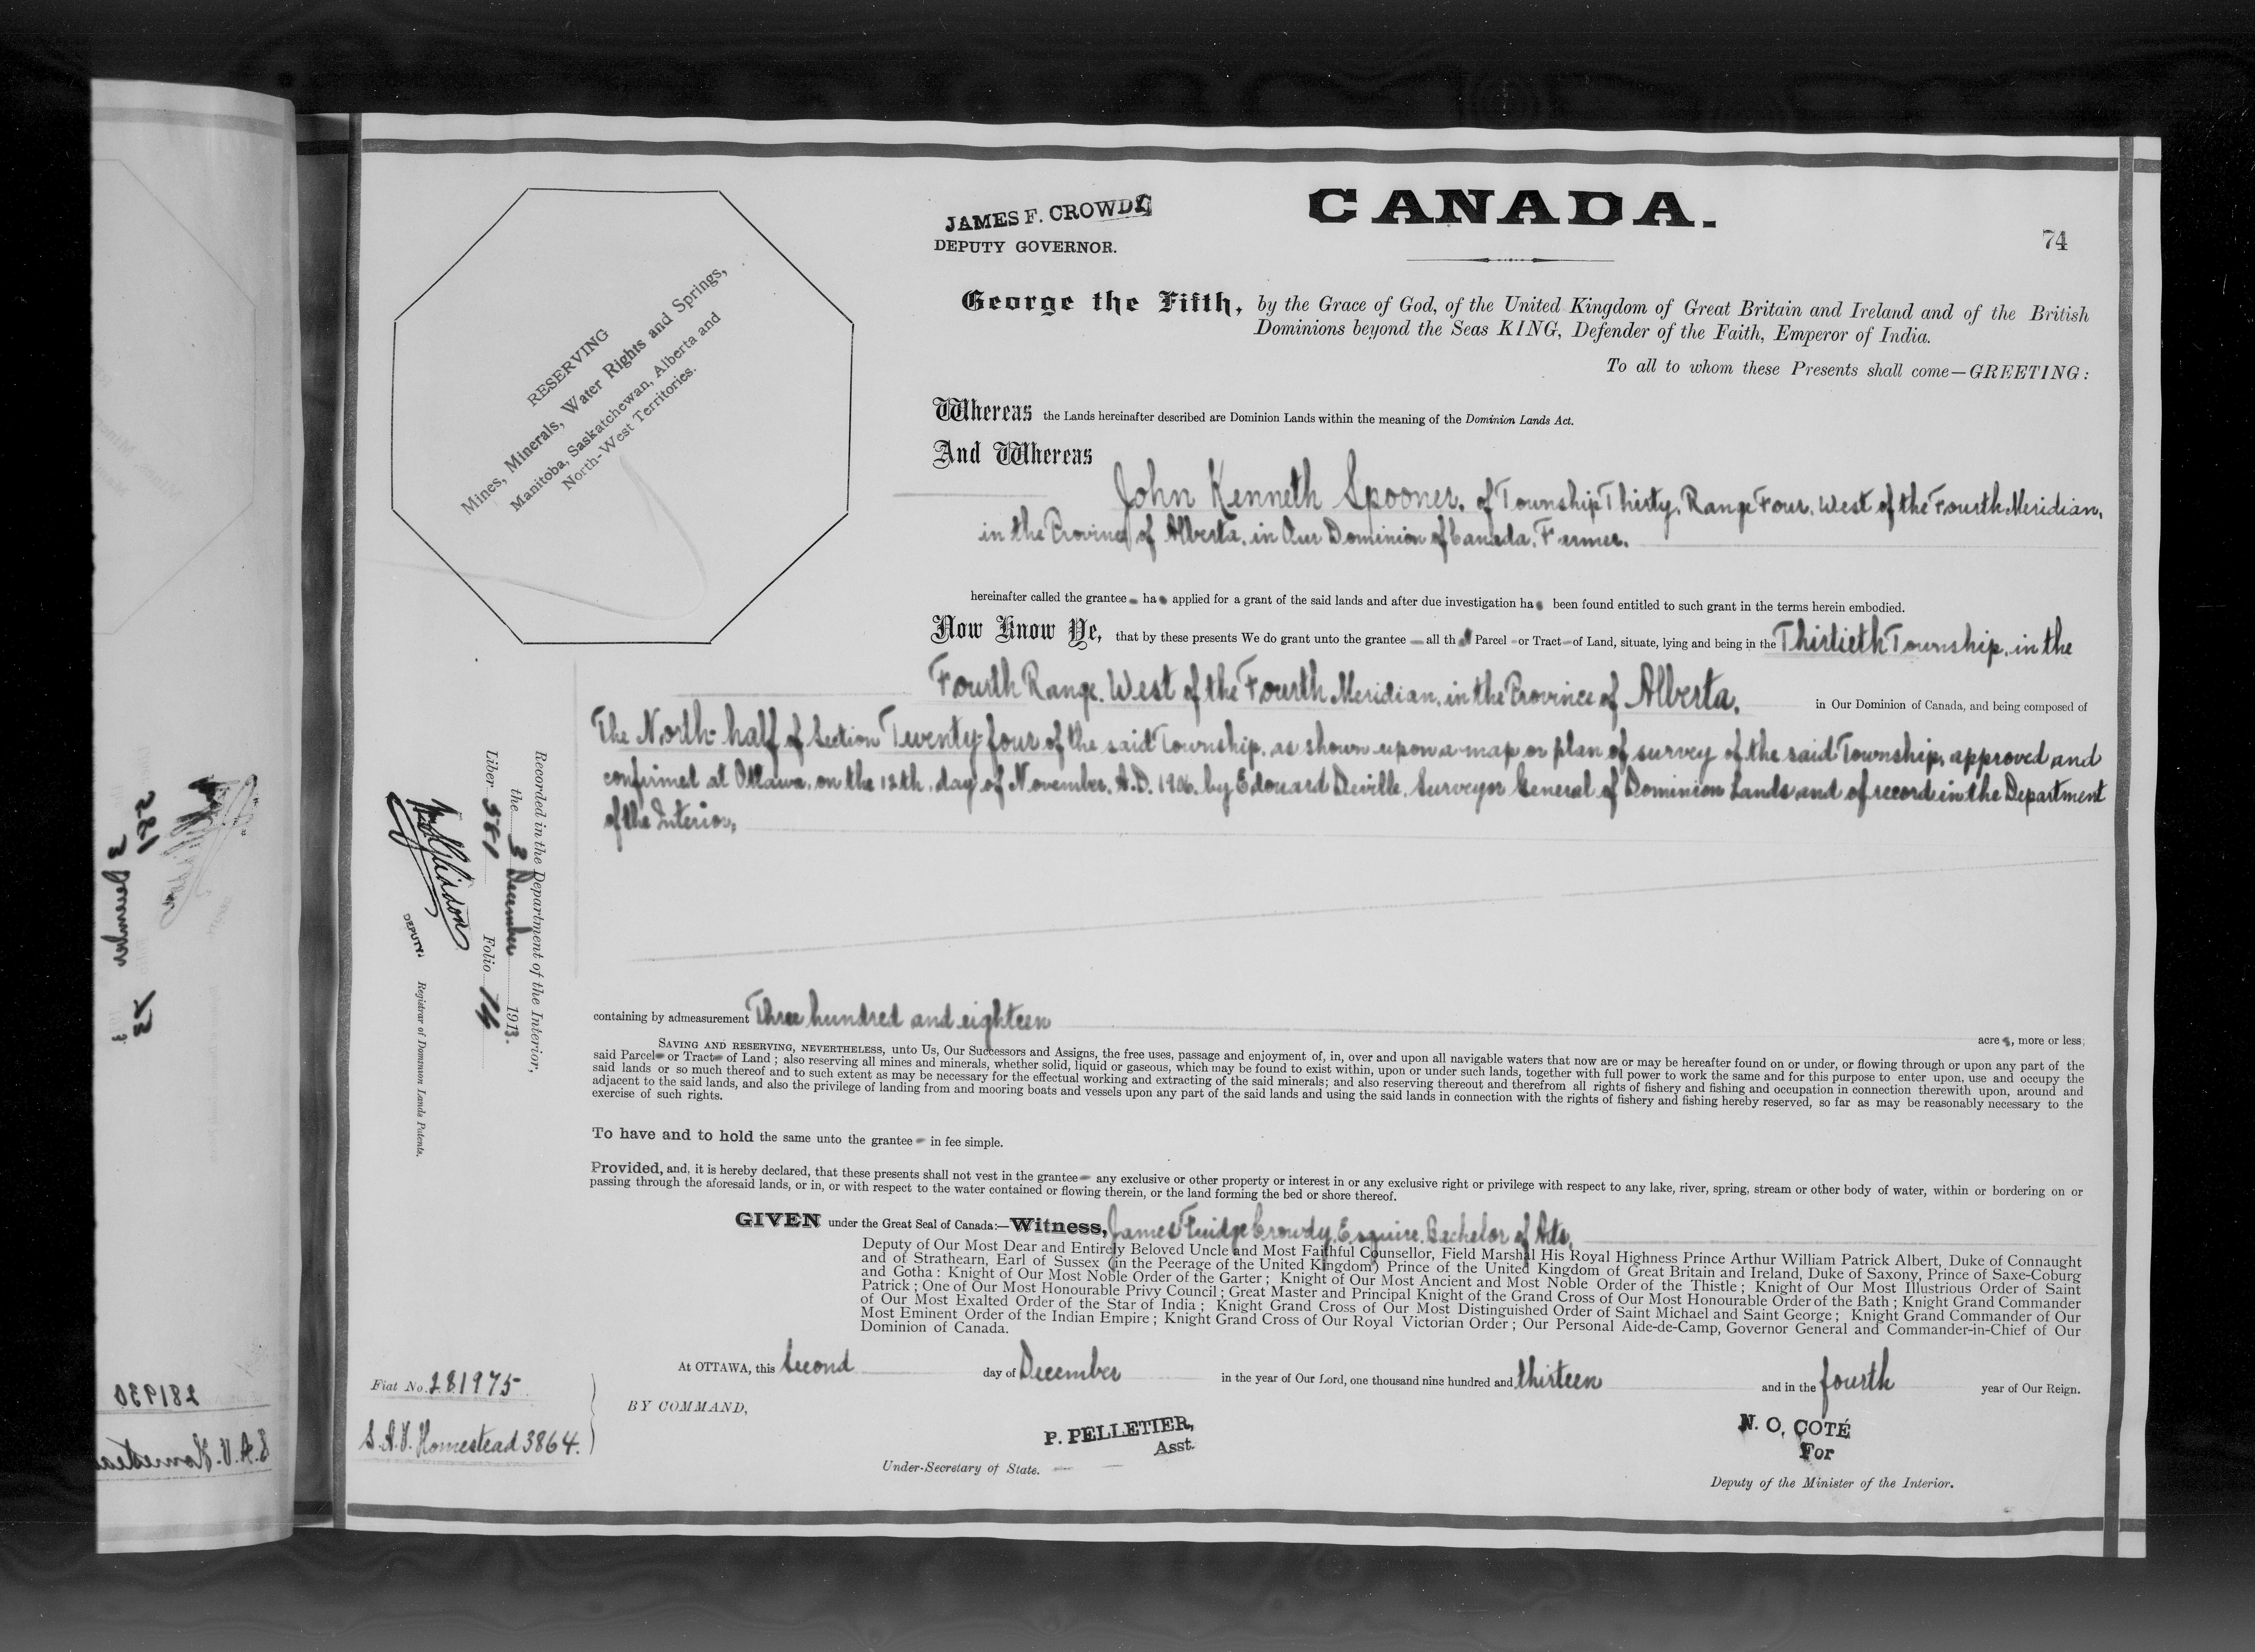 JAMES F. CROWDY
DEPUTY GOVERNOR.
CANADA.
74
George the Fifth, by the Grace of God, of the United Kingdom of Great Britain and Ireland and of the British
Dominions beyond the Seas KING, Defender of the Faith, Emperor of India.
To all to whom these Presents shall come—GREETING:
RESERVING
Mines, Minerals, Water Rights and Springs,
Manitoba, Saskatchewan, Alberta and
North-West Territories.
Whereas the Lands hereinafter described are Dominion Lands within the meaning of the Dominion Lands Act.
And Whereas
John Kenneth Spooner, of Township Thirty, Range Four, West of the Fourth Meridian,
in the Province of Alberta, in Our Dominion of Canada, Farmer.
hereinafter called the grantee has applied for a grant of the said lands and after due investigation has been found entitled to such grant in the terms herein embodied.
Now Know Ye, that by these presents We do grant unto the grantee — all that Parcel or Tract of Land, situate, lying and being in the Thirtieth Township, in the
Fourth Range, West of the Fourth Meridian, in the Province of Alberta, in Our Dominion of Canada, and being composed of
The North-half of Section Twenty-four of the said Township, as shown upon a map or plan of survey of the said Township, approved and
confirmed at Ottawa, on the 12th, day of November, A.D. 1906, by Edouard Deville, Surveyor General of Dominion Lands and of record in the Department
of the Interior,
Recorded in the Department of the Interior,
the 3 December 1913.
Liber 381 Folio 74
DEPUTY. Registrar of Dominion Lands Patents.
containing by admeasurement Three hundred and eighteen acres, more or less;
SAVING AND RESERVING, NEVERTHELESS, unto Us, Our Successors and Assigns, the free uses, passage and enjoyment of, in, over and upon all navigable waters that now are or may be hereafter found on or under, or flowing through or upon any part of the
said Parcel or Tract of Land; also reserving all mines and minerals, whether solid, liquid or gaseous, which may be found to exist within, upon or under such lands, together with full power to work the same and for this purpose to enter upon, use and occupy the
said lands or so much thereof and to such extent as may be necessary for the effectual working and extracting of the said minerals; and also reserving thereout and therefrom all rights of fishery and fishing and occupation in connection therewith upon, around and
adjacent to the said lands, and also the privilege of landing from and mooring boats and vessels upon any part of the said lands and using the said lands in connection with the rights of fishery and fishing hereby reserved, so far as may be reasonably necessary to the
exercise of such rights.
To have and to hold the same unto the grantee in fee simple.
Provided, and, it is hereby declared, that these presents shall not vest in the grantee any exclusive or other property or interest in or any exclusive right or privilege with respect to any lake, river, spring, stream or other body of water, within or bordering on or
passing through the aforesaid lands, or in, or with respect to the water contained or flowing therein, or the land forming the bed or shore thereof.
GIVEN under the Great Seal of Canada:—Witness, James Fuidge Crowdy, Esquire, Bachelor of Arts,
Deputy of Our Most Dear and Entirely Beloved Uncle and Most Faithful Counsellor, Field Marshal His Royal Highness Prince Arthur William Patrick Albert, Duke of Connaught
and of Strathearn, Earl of Sussex (in the Peerage of the United Kingdom) Prince of the United Kingdom of Great Britain and Ireland, Duke of Saxony, Prince of Saxe-Coburg
and Gotha: Knight of Our Most Noble Order of the Garter; Knight of Our Most Ancient and Most Noble Order of the Thistle; Knight of Our Most Illustrious Order of Saint
Patrick; One of Our Most Honourable Privy Council; Great Master and Principal Knight of the Grand Cross of Our Most Honourable Order of the Bath; Knight Grand Commander
of Our Most Exalted Order of the Star of India; Knight Grand Cross of Our Most Distinguished Order of Saint Michael and Saint George; Knight Grand Commander of Our
Most Eminent Order of the Indian Empire; Knight Grand Cross of Our Royal Victorian Order; Our Personal Aide-de-Camp, Governor General and Commander-in-Chief of Our
Dominion of Canada.
At OTTAWA, this Second day of December in the year of Our Lord, one thousand nine hundred and thirteen and in the fourth year of Our Reign.
Fiat No. 281975
S.A.V. Homestead 3864.
BY COMMAND,
P. PELLETIER,
Asst.
Under-Secretary of State.
N. O. COTÉ
For
Deputy of the Minister of the Interior.